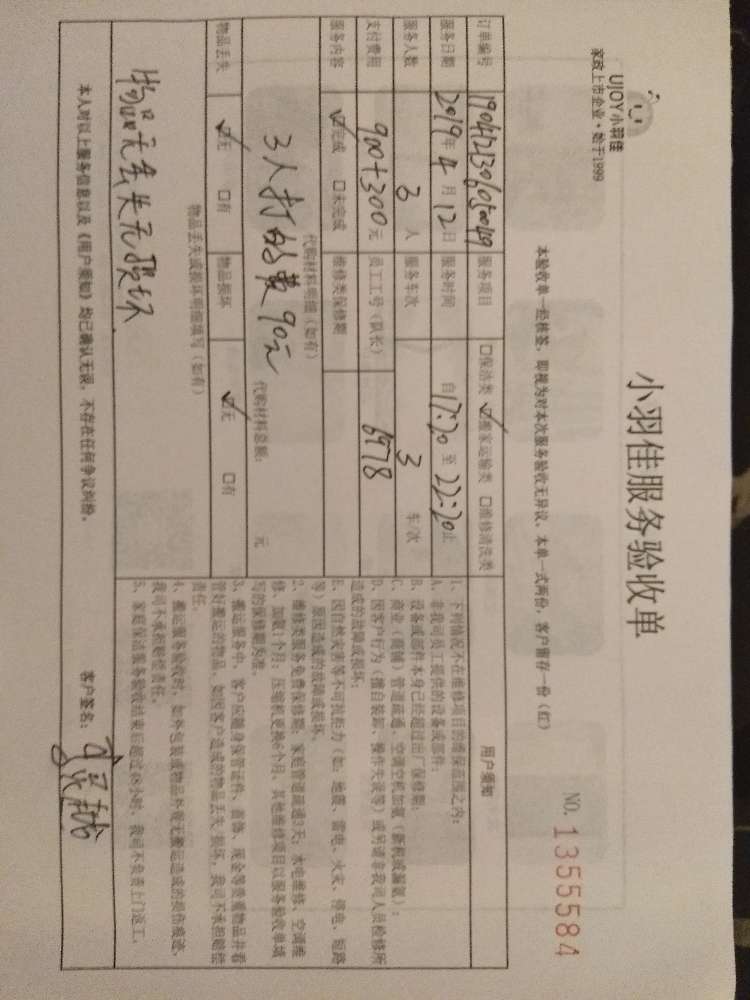 UJOY小羽佳
家政上市企业·始于1999
小羽佳服务验收单
NO. 1355584
本验收单一经核签,即视为对本次服务验收无异议。本单一式两份,客户留存一份(红)
订单编号 服务项目 □保洁类 ☑搬家运输类 □维修清洗类
服务日期 2019年4月12日 服务时间 自17:20至22:20止
服务人数 3人 服务车次 3车/次
支付费用 900+300元 员工工号(队长) 6978
服务内容 ☑完成 □未完成 维修类保修期
代购材料明细(如有)
3人打的费90元
代购材料总额: 元
物品丢失 ☑无 □有 物品损坏 ☑无 □有
物品丢失或损坏明细填写(如有)
物品无丢失无损坏
本人对以上服务信息以及《用户须知》均已确认无误,不存在任何争议纠纷。
用户须知
1、下列情况不在维修项目的维保范围之内:
A、非我司员工提供的设备或部件;
B、设备或部件本身已经超过出厂保修期;
C、商业(商铺)管道疏通、空调空机加氨(新机或漏氨);
D、因客户行为(擅自装卸、操作失误等)或另请非我司人员检修所
造成的故障或损坏;
E、因自然灾害等不可抗拒力(如:地震、雷电、火灾、停电、短路
等)原因造成的故障或损坏。
2、维修类服务免费保修期:家庭管道疏通3天;水电维修、空调维
修、加氨1个月;压缩机更换6个月,其他维修项目以服务验收单填
写的保修期为准。
3、搬运服务中,客户应随身保管证件、首饰、现金等贵重物品并看
管好搬运的物品,如因客户造成的物品丢失、损坏,我司不承担赔偿
责任。
4、搬运服务验收时,如外包装或物品外观无搬运造成的损伤痕迹,
我司不承担赔偿责任。
5、家庭保洁服务验收结束后超过48小时,我司不负责上门返工。
客户签名: